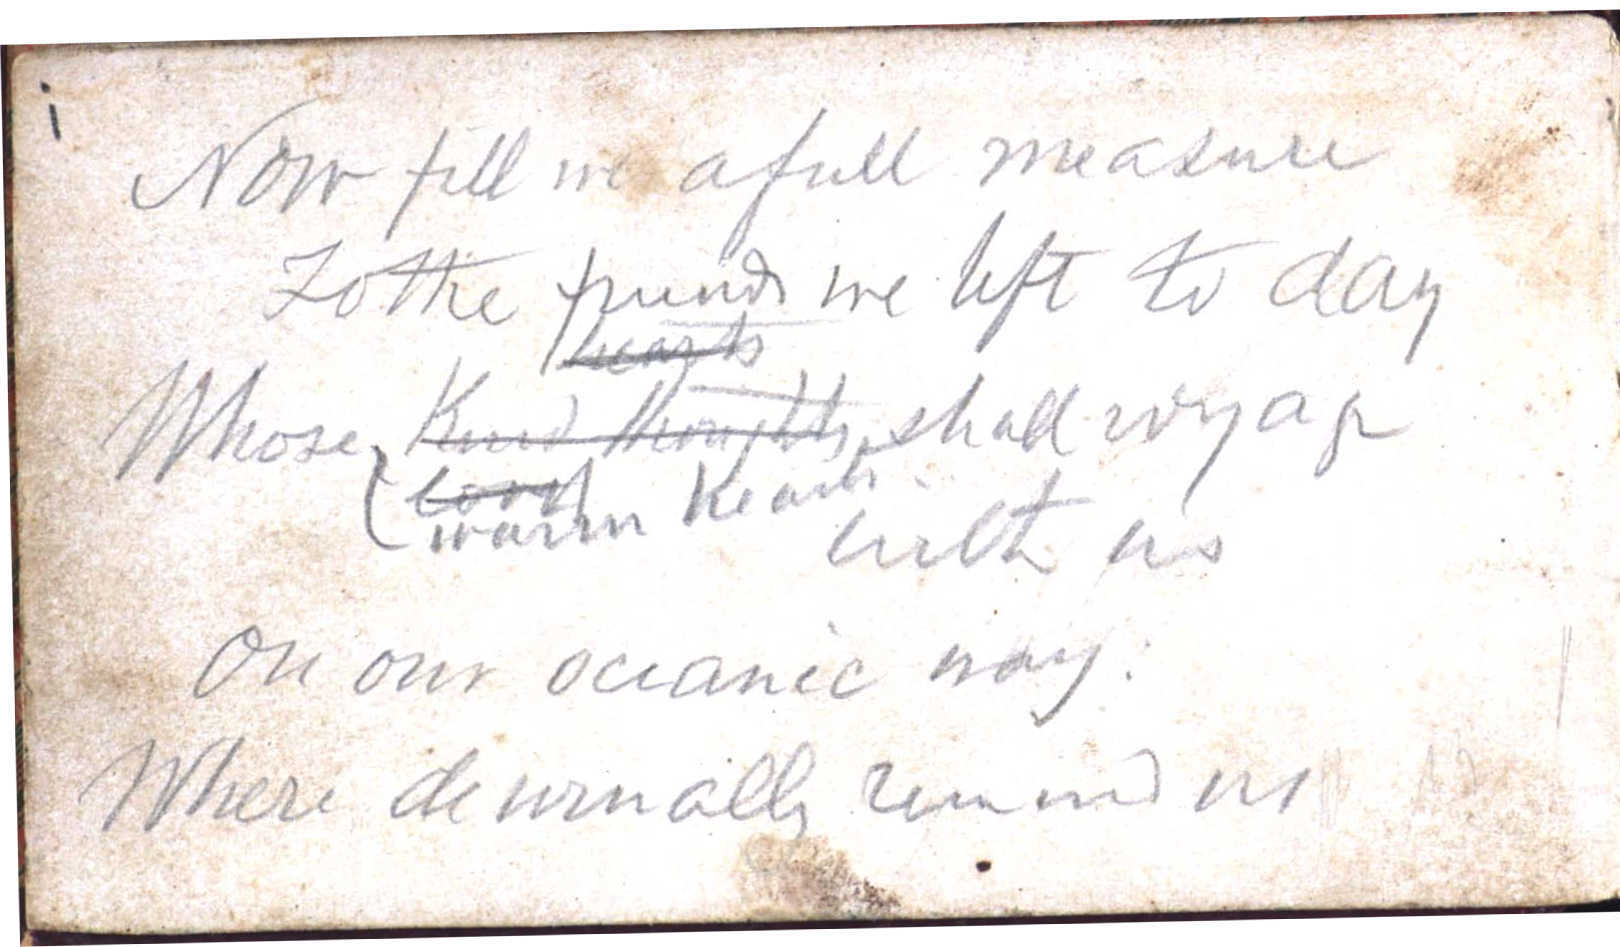 i
Now fill we a full measure
To the friends we left to day
hearts
Whose kind thoughts shall voyage
warm hearts
with us
On our oceanic way:
Where diurnally remind us